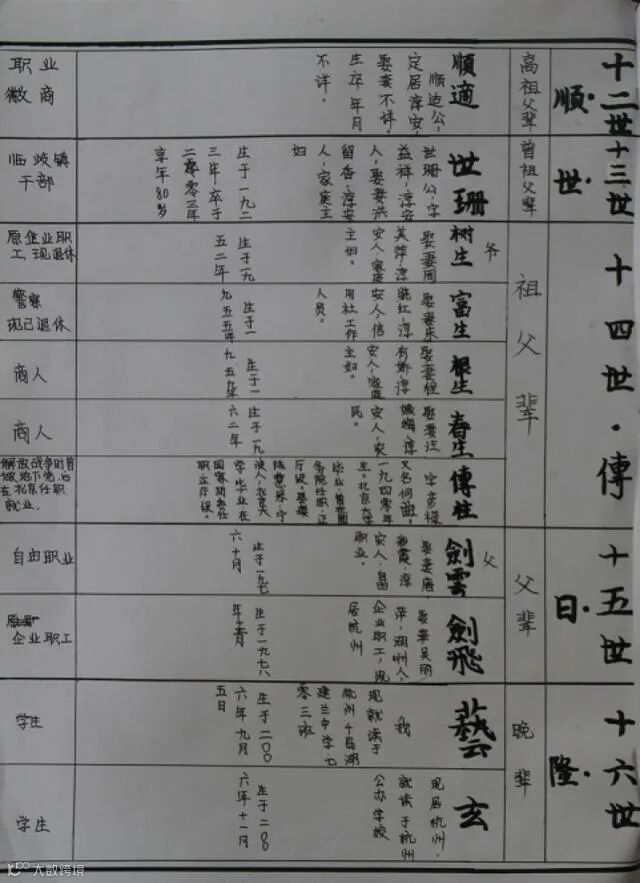 十二世·順
高祖父辈
順適
順适公，
定居淳安，
娶妻不详，
生卒年月
不详。
职业
徽商
十三世·世
曾祖父辈
世珊
世珊公，字
益祥，淳安
人，娶妻洪
留香，淳安
人，家庭主
妇
生于一九二
三年，卒于
二零零三年
享年80岁
临岐镇
干部
十四世·傳
祖父辈
爷
树生
娶妻周
美萍，淳
安人，家庭
主妇。
生于一九
五二年
原企业职
工，现退休
富生
娶妻宋
晓红，淳
安人，信
用社工作
人员。
生于一
九五五年
警察
现已退休
根生
娶妻程
有娇，淳
安人，家庭
主妇。
生于一
九五九年
商人
春生
娶妻汪
淳
安人，农
民。
生于一九
六二年
商人
傳柱
字彦禄
又名何迪，
一九四零年
生。北京大学
毕业，曾在国
务院任职，正
厅级。娶妻
宁
波人，北京大
学毕业，在
国家
职正厅级。
解放战争时曾
做地下党，后
在北京任职
就业。
十五世·日
父辈
父
劍雲
娶妻唐
淳
安人，自由
职业。
生于一九七
六十月
自由职业
劍飛
娶妻吴丽
萍，湖州人，
企业职工，现
居杭州
生于一九七八
年
企业职工
十六世·隆
晚辈
藝
我
现就读于
杭州千岛湖
建兰中学七
零三班
生于二〇〇
六年九月
五日
学生
玄
现居杭州，
就读于杭州
公办学校
生于二〇〇
六年十一月
学生
大数跨境